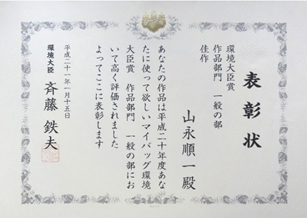 表彰状
環境大臣賞
作品部門 一般の部
佳作
山永順一殿
あなたの作品は平成二十年度あな
たに使って欲しいマイバッグ環境
大臣賞 作品部門 一般の部にお
いて高く評価されました
よってここに表彰します
平成二十一年一月十五日
環境大臣 斉藤鉄夫